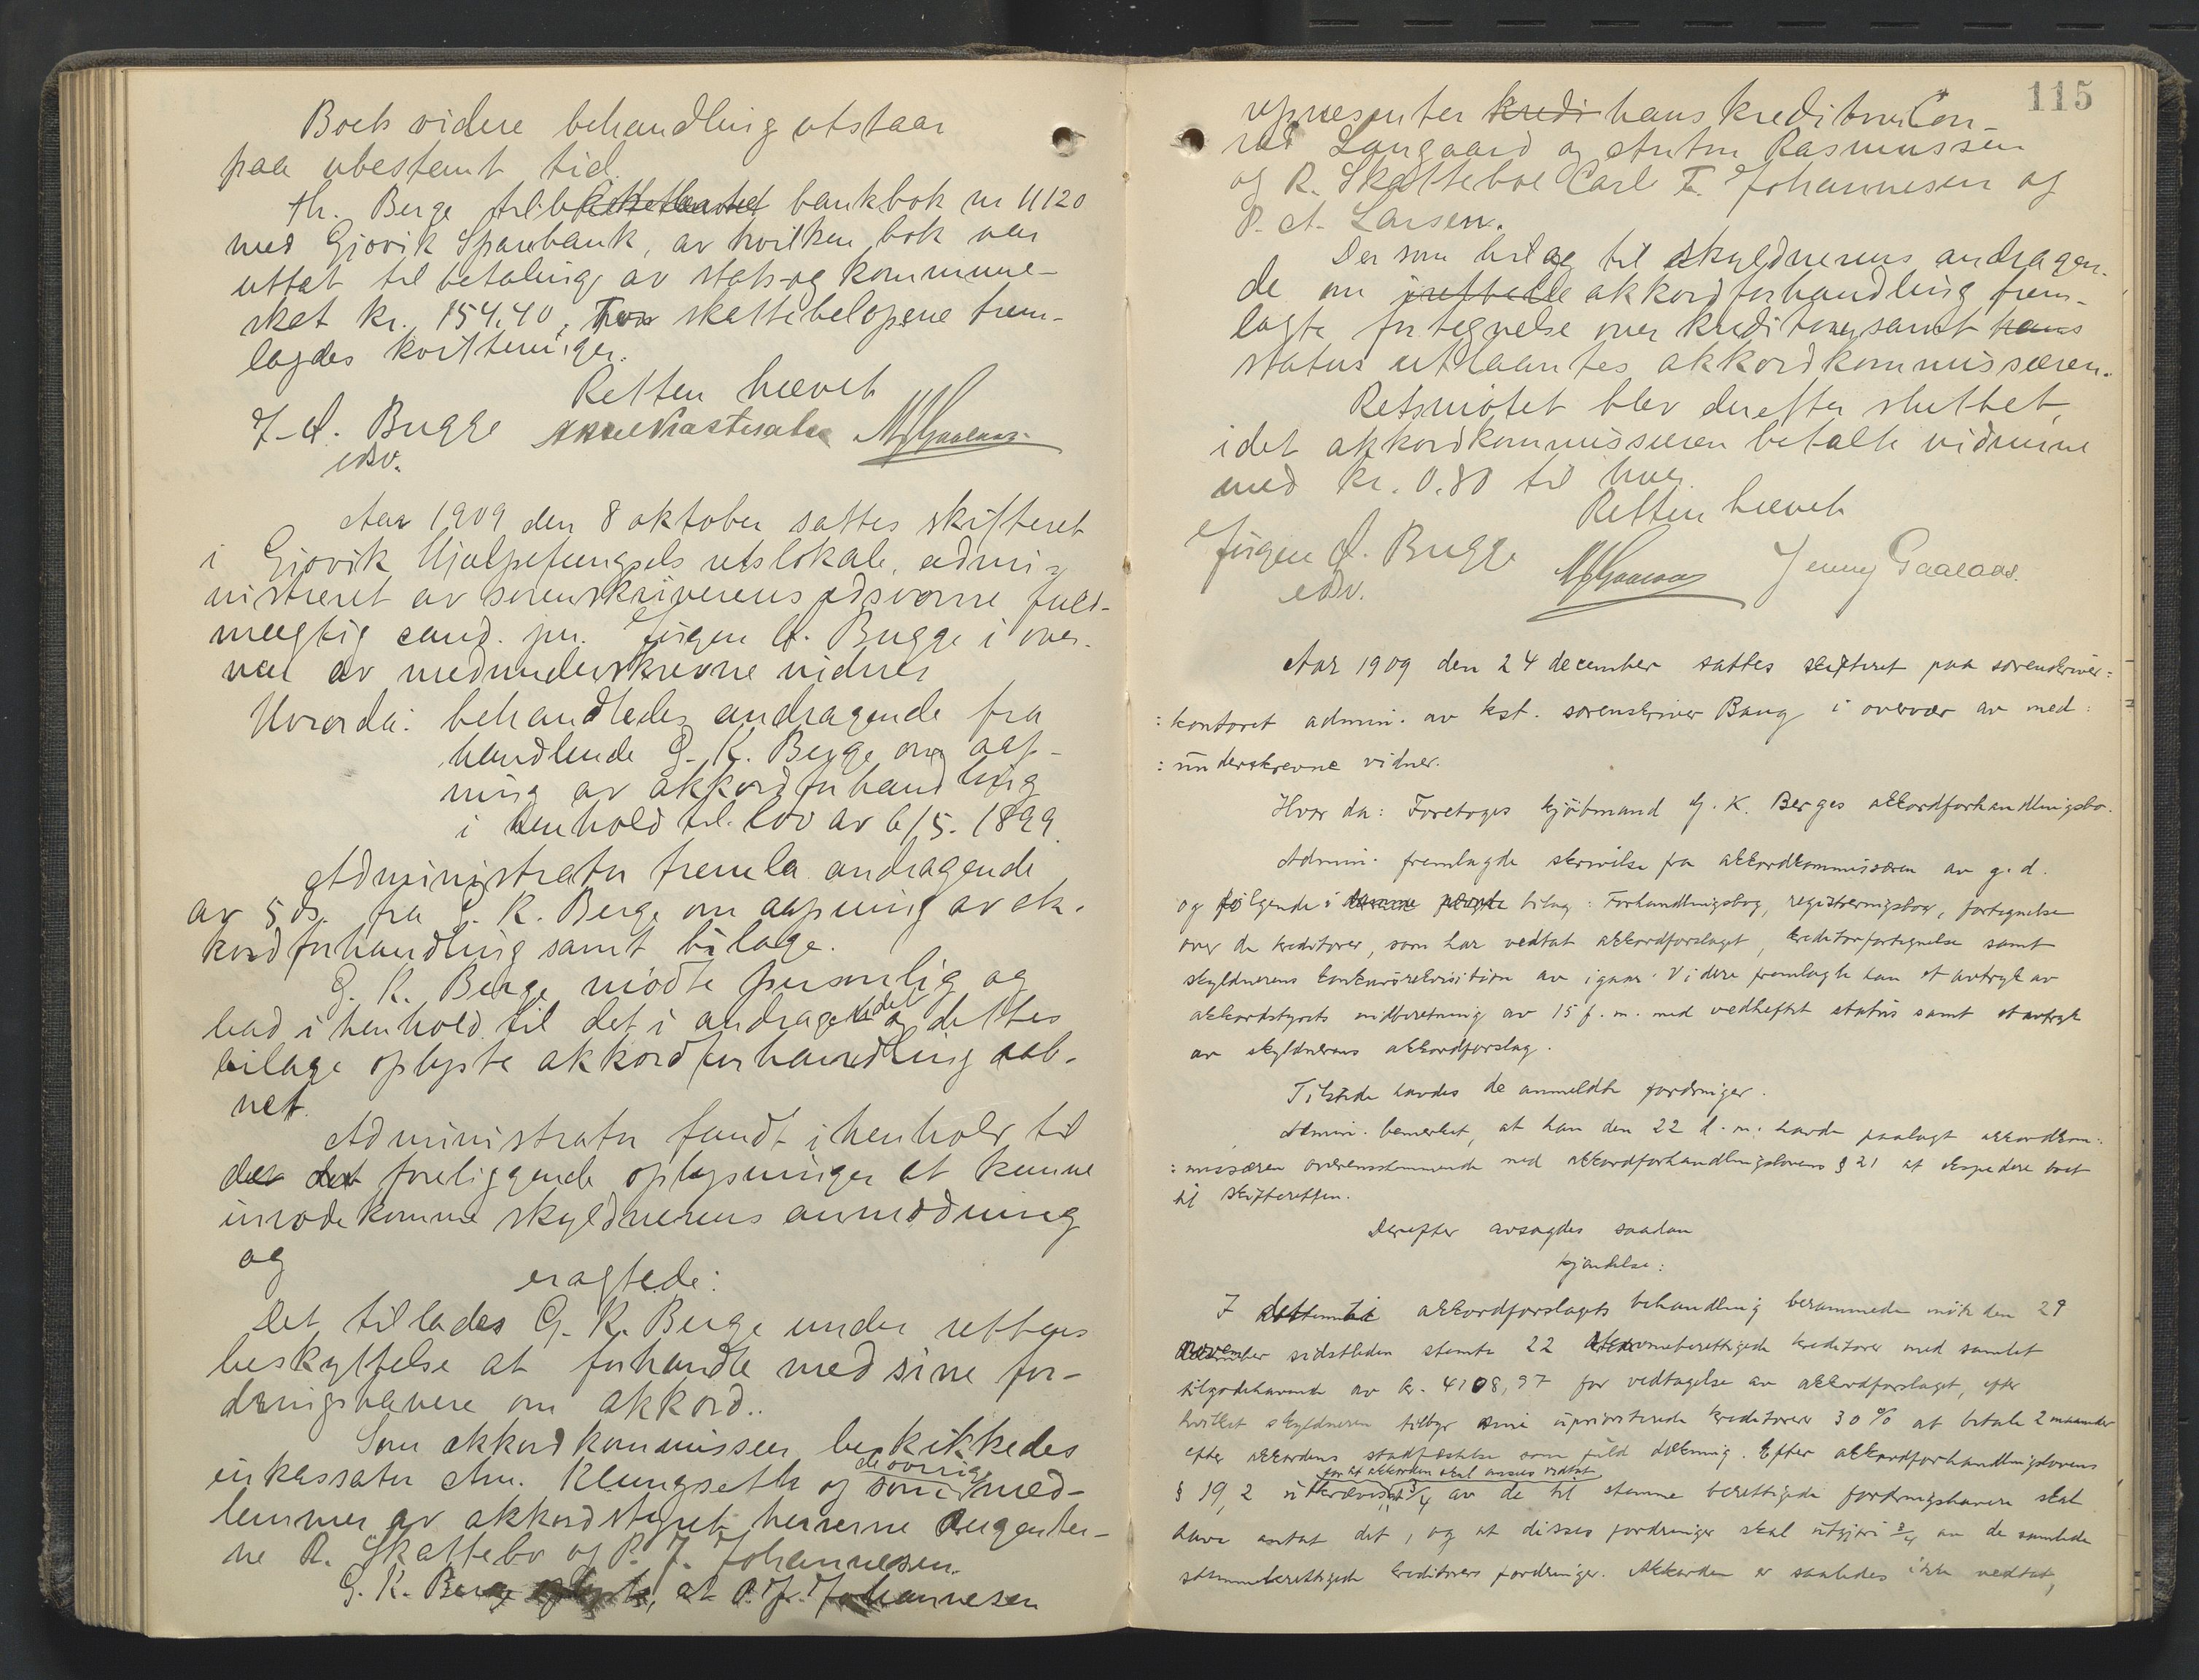 Boets videre behandling utstaar
paa ubestemt tid.
Hr. Berge bankbok nr 11120
med Gjøvik Sparebank, av hvilken bok var
uttat til betaling av stats- og kommune-
skat kr. 154,40, For skattebeløpene frem-
lagdes kvitteringer.
Retten hævet
J. A. Bugge
edsv.
Aar 1909 den 8 oktober sattes skifteret
i Gjøvik Hjælpefængsels retslokale, admi-
nistreret av sorenskriverens edsvorne fuld-
mægtig cand. jur. Jürgen A. Bugge i over-
vær av medunderskrevne vidner
Hvorda: behandledes andragende fra
handlende G. K. Berge om aap-
ning av akkordforhandling
i henhold til lov av 6/5. 1899.
Administrator fremla andragende
av 5 ds. fra G. K. Berge om aapning av ak-
kordforhandling samt bilage.
G. K. Berge mødte personlig og
bad i henhold til det i andragendet og dettes
bilage oplyste akkordforhandling aab-
net.
Administrator fandt i henhold til
de foreliggende oplysninger at kunne
imødekomme skyldnerens anmodning
og
eragtede:
Det tillades G. K. Berge under rettens
beskyttelse at forhandle med sine for-
dringshavere om akkord.
Som akkordkommissær beskikkedes
inkassator Am. Klungseth og som de øvrige med-
lemmer av akkordstyret herrerne agenter-
ne R. Skattebo og P. J. Johannesen.
G. K. Berge oplyste, at P. J. Johannesen
115
representer kredi hans kreditorer Con-
rad Langaard og Anton Rasmussen
og R. Skattebo Carl Fr. Johannesen og
P. A. Larsen.
De som bilag til skyldnerens andragen-
de om akkordforhandling frem-
lagte fortegnelse over kreditorer samt hans
status utlaantes akkordkommissæren.
Retsmøtet blev derefter sluttet,
idet akkordkommissæren betalte vidnerne
med kr. 0.80 til hver.
Retten hævet
Jürgen A. Bugge
edsv.
Jenny Gaalaas.
Aar 1909 den 24 december sattes skifteret paa sorenskriver=
=kontoret admin. av kst. sorenskriver Bang i overvær av med=
=underskrevne vidner.
Hvor da: Foretoges kjøbmand G. K. Berges akkordforhandlingsbo.
Admin. fremlagde skrivelse fra akkordkommissæren av g. d.
og følgende i bilag: Forhandlingsbog, registreringsbog, fortegnelse
over de kreditorer, som har vedtat akkordforslaget, kreditorfortegnelse samt
skyldnerens konkursrekvisition av igaar. Videre fremlagte han et avtryk av
akkordstyrets indberetning av 15 f. m. med vedheftet status samt et avtryk
av skyldnerens akkordforslag.
Tilstede havdes de anmeldte fordringer.
Admin. bemerket, at han den 22 d. m. havde paalagt akkordkom=
=missæren overensstemmende med akkordforhandlingslovens § 21 at ekspedere boet
til skifteretten.
Derefter avsagdes saadan
kjændelse:
I akkordforslagets behandling berammede møte den 29
november sidstleden stemte 22 stemmeberettigede kreditorer med samlet
tilgodehavende av kr. 4108,97 for vedtagelse av akkordforslaget, efter
hvilket skyldneren tilbyr sine uprioriterede kreditorer 30 % at betale 2 maaneder
efter akkordens stadfæstelse som fuld dækning. Efter akkordforhandlingslovens
for at akkorden skal ansees vedtat
§ 19, 2 utkræves at 3/4 av de til stemme berettigede fordringshavere skal
have antat det, og at disses fordringer skal utgjøre 3/4 av de samlede
stemmeberettigede kreditorers fordringer. Akkorden er saaledes ikke vedtat,